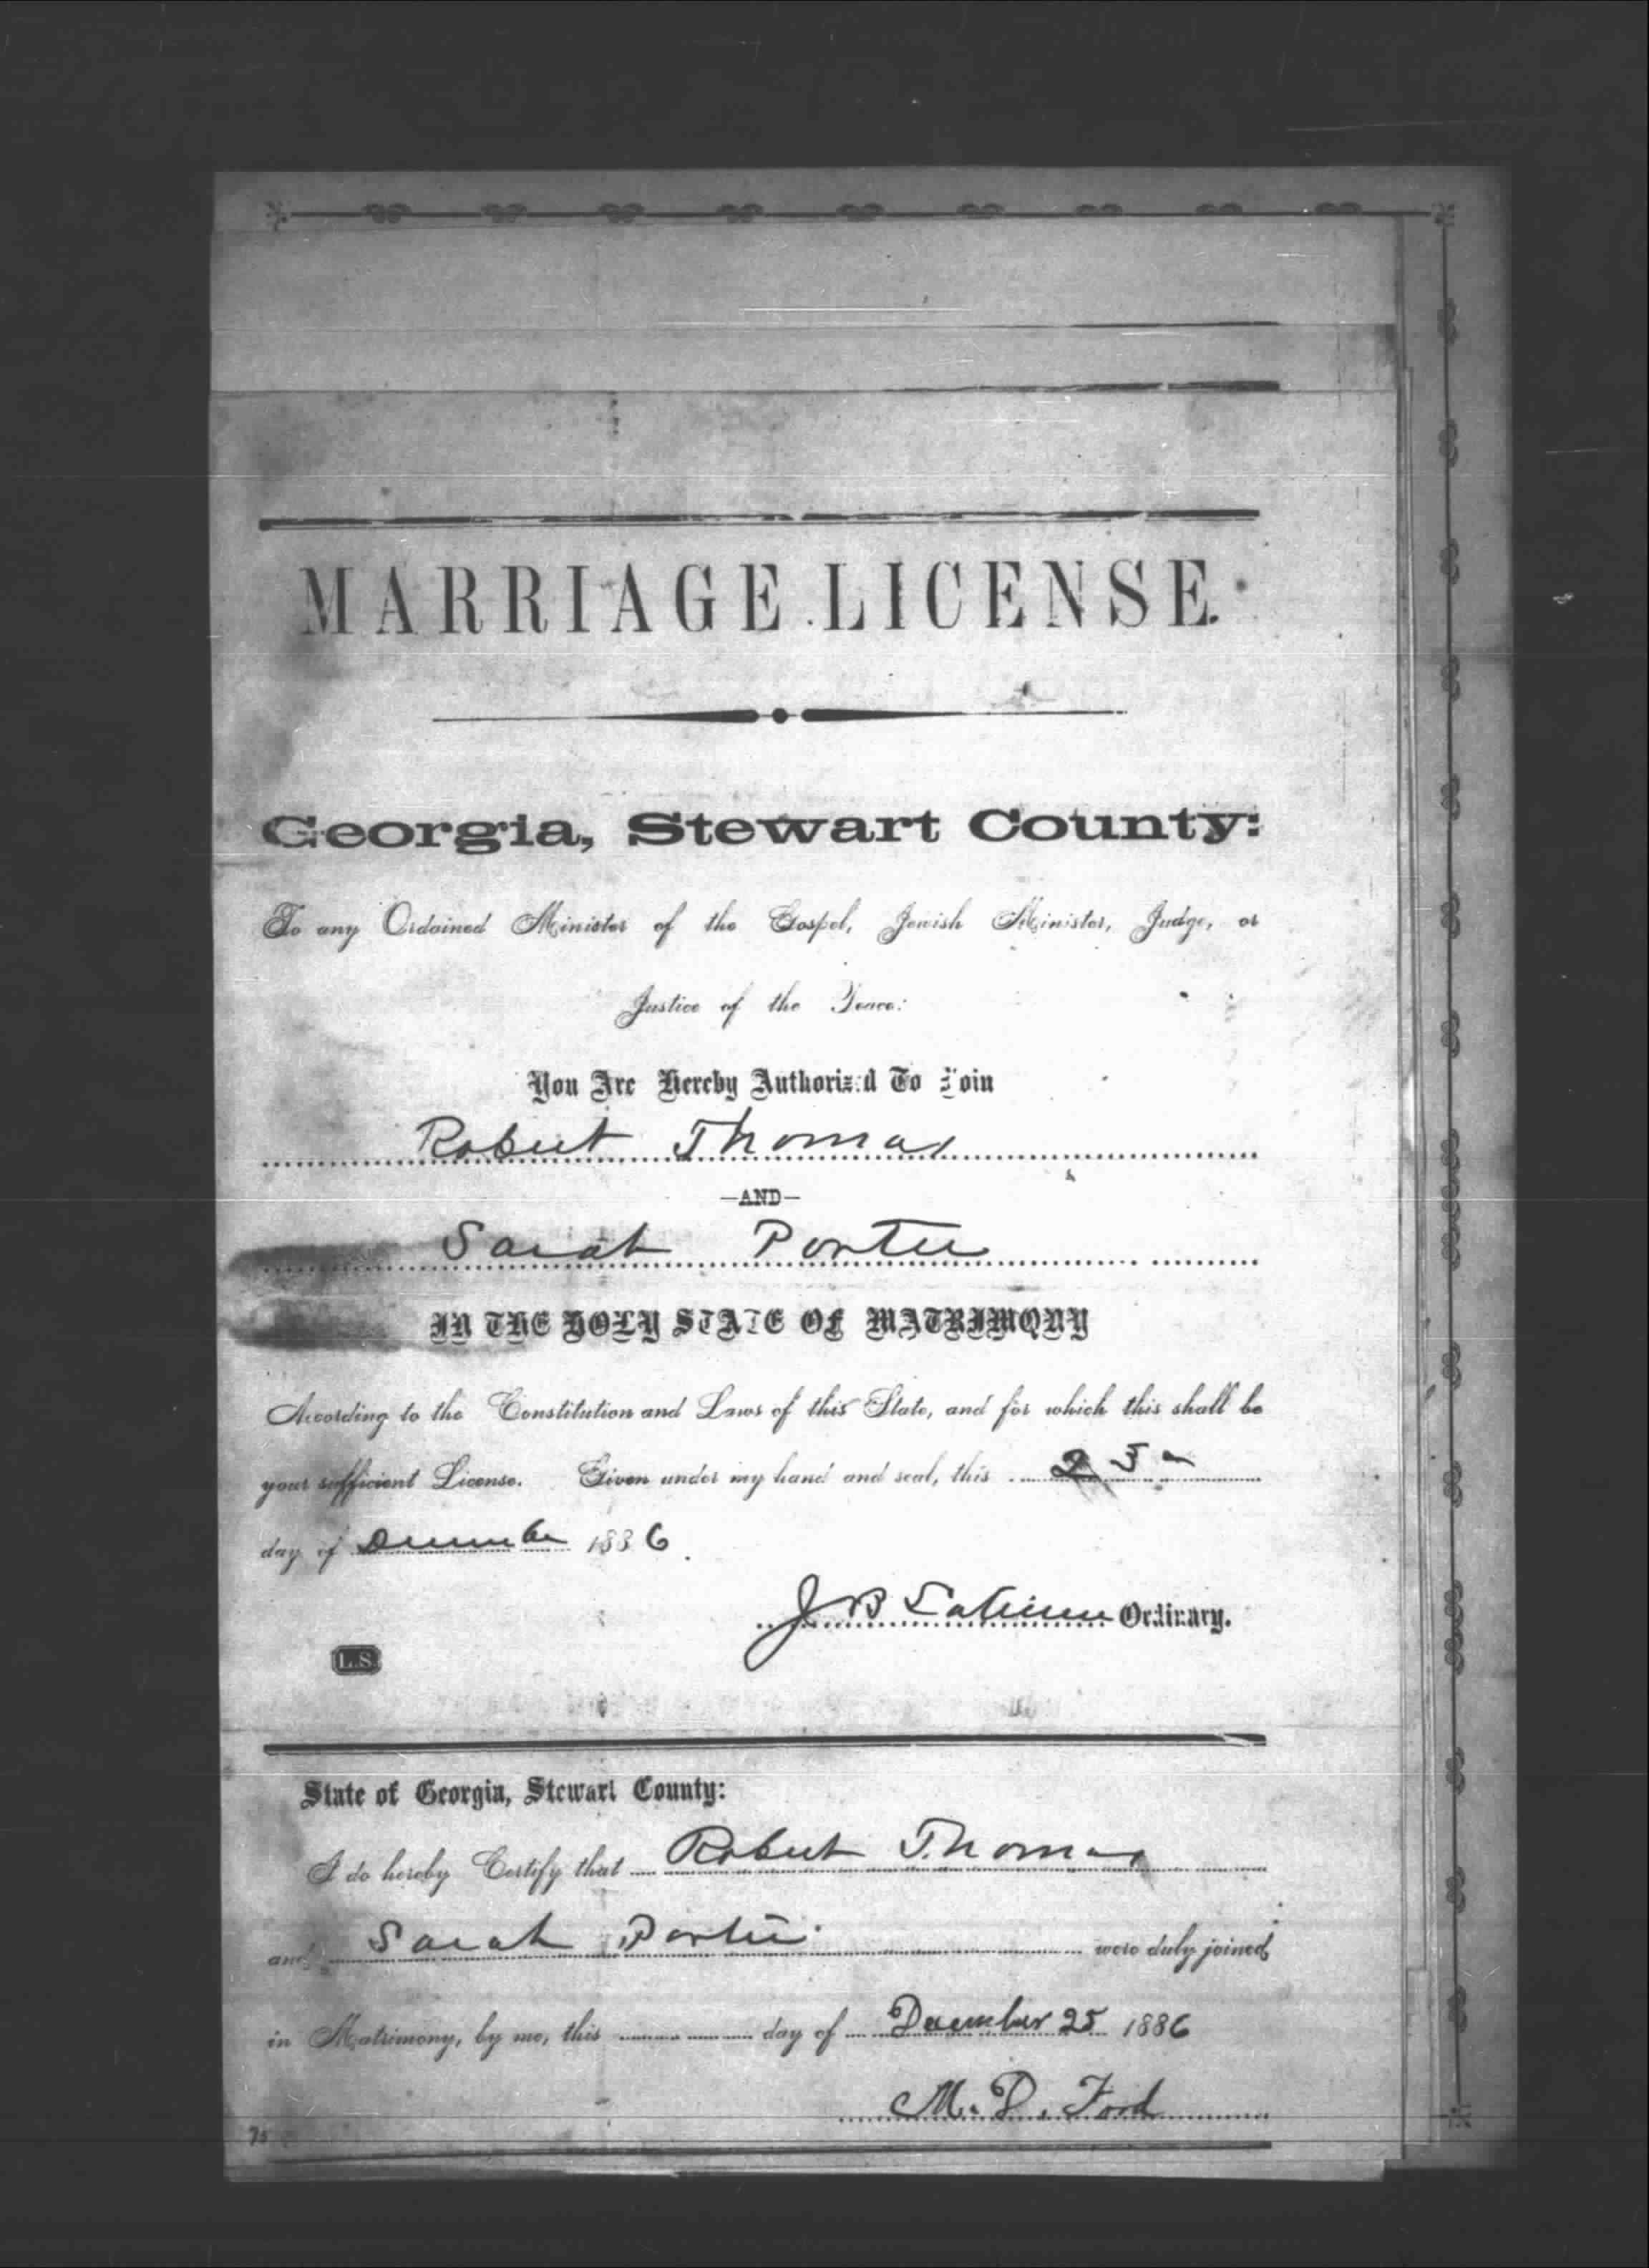 MARRIAGE LICENSE.
Georgia, Stewart County:
To any Ordained Minister of the Gospel, Jewish Minister, Judge, or
Justice of the Peace:
You Are Hereby Authorized To Join
Robert Thomas
—AND—
Sarah Porter
IN THE HOLY STATE OF MATRIMONY
According to the Constitution and Laws of this State, and for which this shall be
your sufficient License. Given under my hand and seal, this 25
day of December 1886
J B Ordinary.
L.S.
State of Georgia, Stewart County:
I do hereby Certify that Robert Thomas
and Sarah Porter were duly joined
in Matrimony, by me, this day of December 25 1886
M. D. Ford